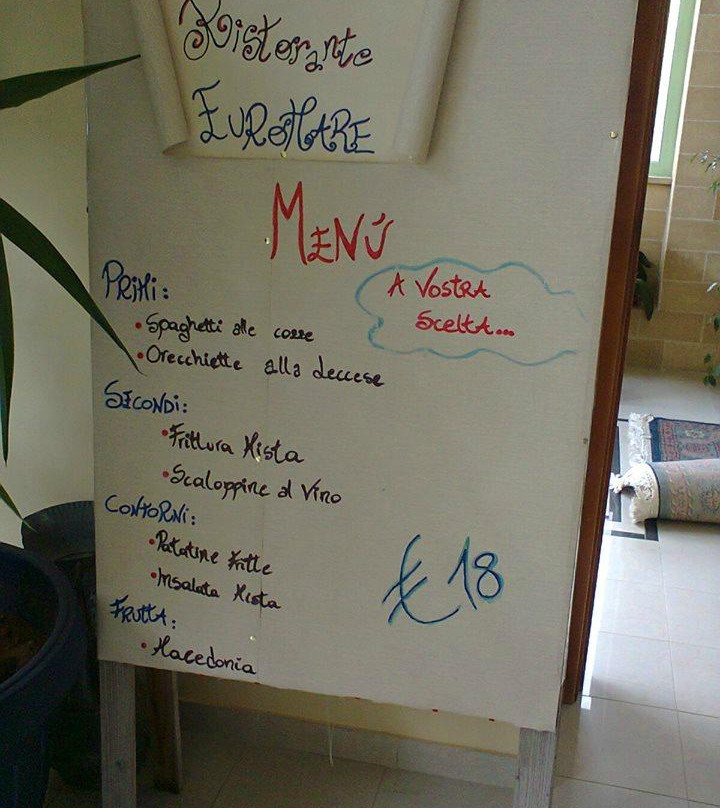 Ristorante
EUROMARE
MENÚ
PRIMI:
A VOSTRA
SCELTA...
• Spaghetti alle cozze
• Orecchiette alla leccese
SECONDI:
• Frittura Mista
• Scaloppine al Vino
CONTORNI:
• Patatine Fritte
• Insalata Mista
€ 18
FRUTTA:
• Macedonia